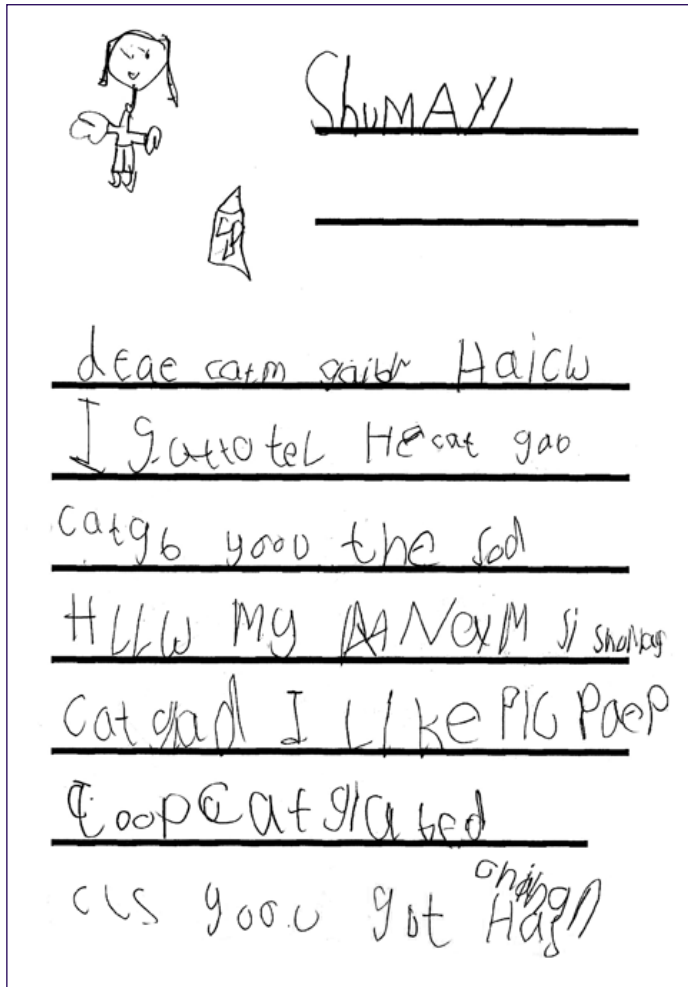 ShuMAYl
deae catm gaibr Haicw
I gattotel He cat gao
catgb yoou the sod
HLLW My NaYM si ShuMay
catgad I LIke PIG PaeP
toop Cat glated
cls yoou got Hag